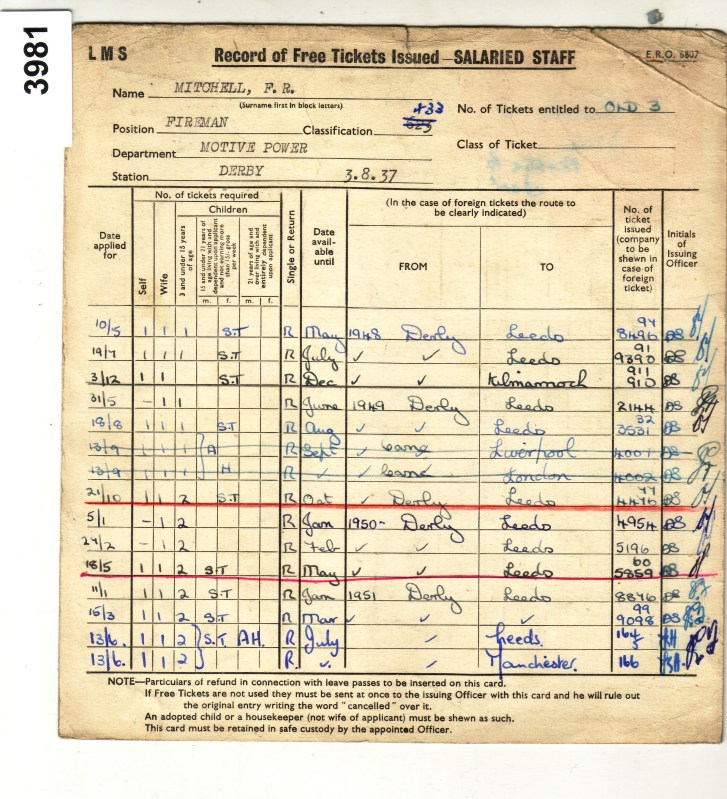 3981
L M S Record of Free Tickets Issued—SALARIED STAFF E.R.O. 5807
Name MITCHELL, F.R.
(Surname first in block letters)
No. of Tickets entitled to OLD 3
433
Position FIREMAN Classification 623
Class of Ticket
Department MOTIVE POWER
Station DERBY 3.8.37
Date applied for
No. of tickets required
Self
Wife
Children
3 and under 15 years of age
15 and under 21 years of age living with and dependent upon applicant and not earning more than 15/- gross per week
m. f.
21 years of age and over living with and entirely dependent upon applicant
m. f.
Single or Return
Date avail-able until
(In the case of foreign tickets the route to be clearly indicated)
FROM
TO
No. of ticket issued (company to be shewn in case of foreign ticket)
Initials of Issuing Officer
10/5 1 1 1 S.T R May 1948 Derby Leeds 8496 94
19/7 1 1 1 S.T R July ✓ ✓ Leeds 9390 91
3/12 1 1 S.T R Dec ✓ ✓ Kilmarnock 910 911
31/5 – 1 1 R June 1949 Derby Leeds 2144
18/8 1 1 1 S.T R Aug ✓ ✓ Leeds 3531 32
13/9 1 1 1 A R Sept ✓ Liverpool 4001
13/9 1 1 1 H R ✓ ✓ London 4002
21/10 1 1 2 S.T R Oct ✓ Derby Leeds 4476 77
5/1 – 1 2 R Jan 1950 – Derby Leeds 4954
24/2 – 1 2 R Feb ✓ ✓ Leeds 5196
18/5 1 1 2 S.T R May ✓ ✓ Leeds 5859 60
11/1 1 1 2 S.T R Jan 1951 Derby Leeds 8846
15/3 1 1 2 S.T R Mar ✓ ✓ ✓ 9098 99
13/6. 1 1 2 S.T A.H. R July ✓ Leeds. 164 5
13/6. 1 1 2 R. ✓ ✓ Manchester. 166
NOTE—Particulars of refund in connection with leave passes to be inserted on this card.
If Free Tickets are not used they must be sent at once to the issuing Officer with this card and he will rule out
the original entry writing the word "cancelled" over it.
An adopted child or a housekeeper (not wife of applicant) must be shewn as such.
This card must be retained in safe custody by the appointed Officer.